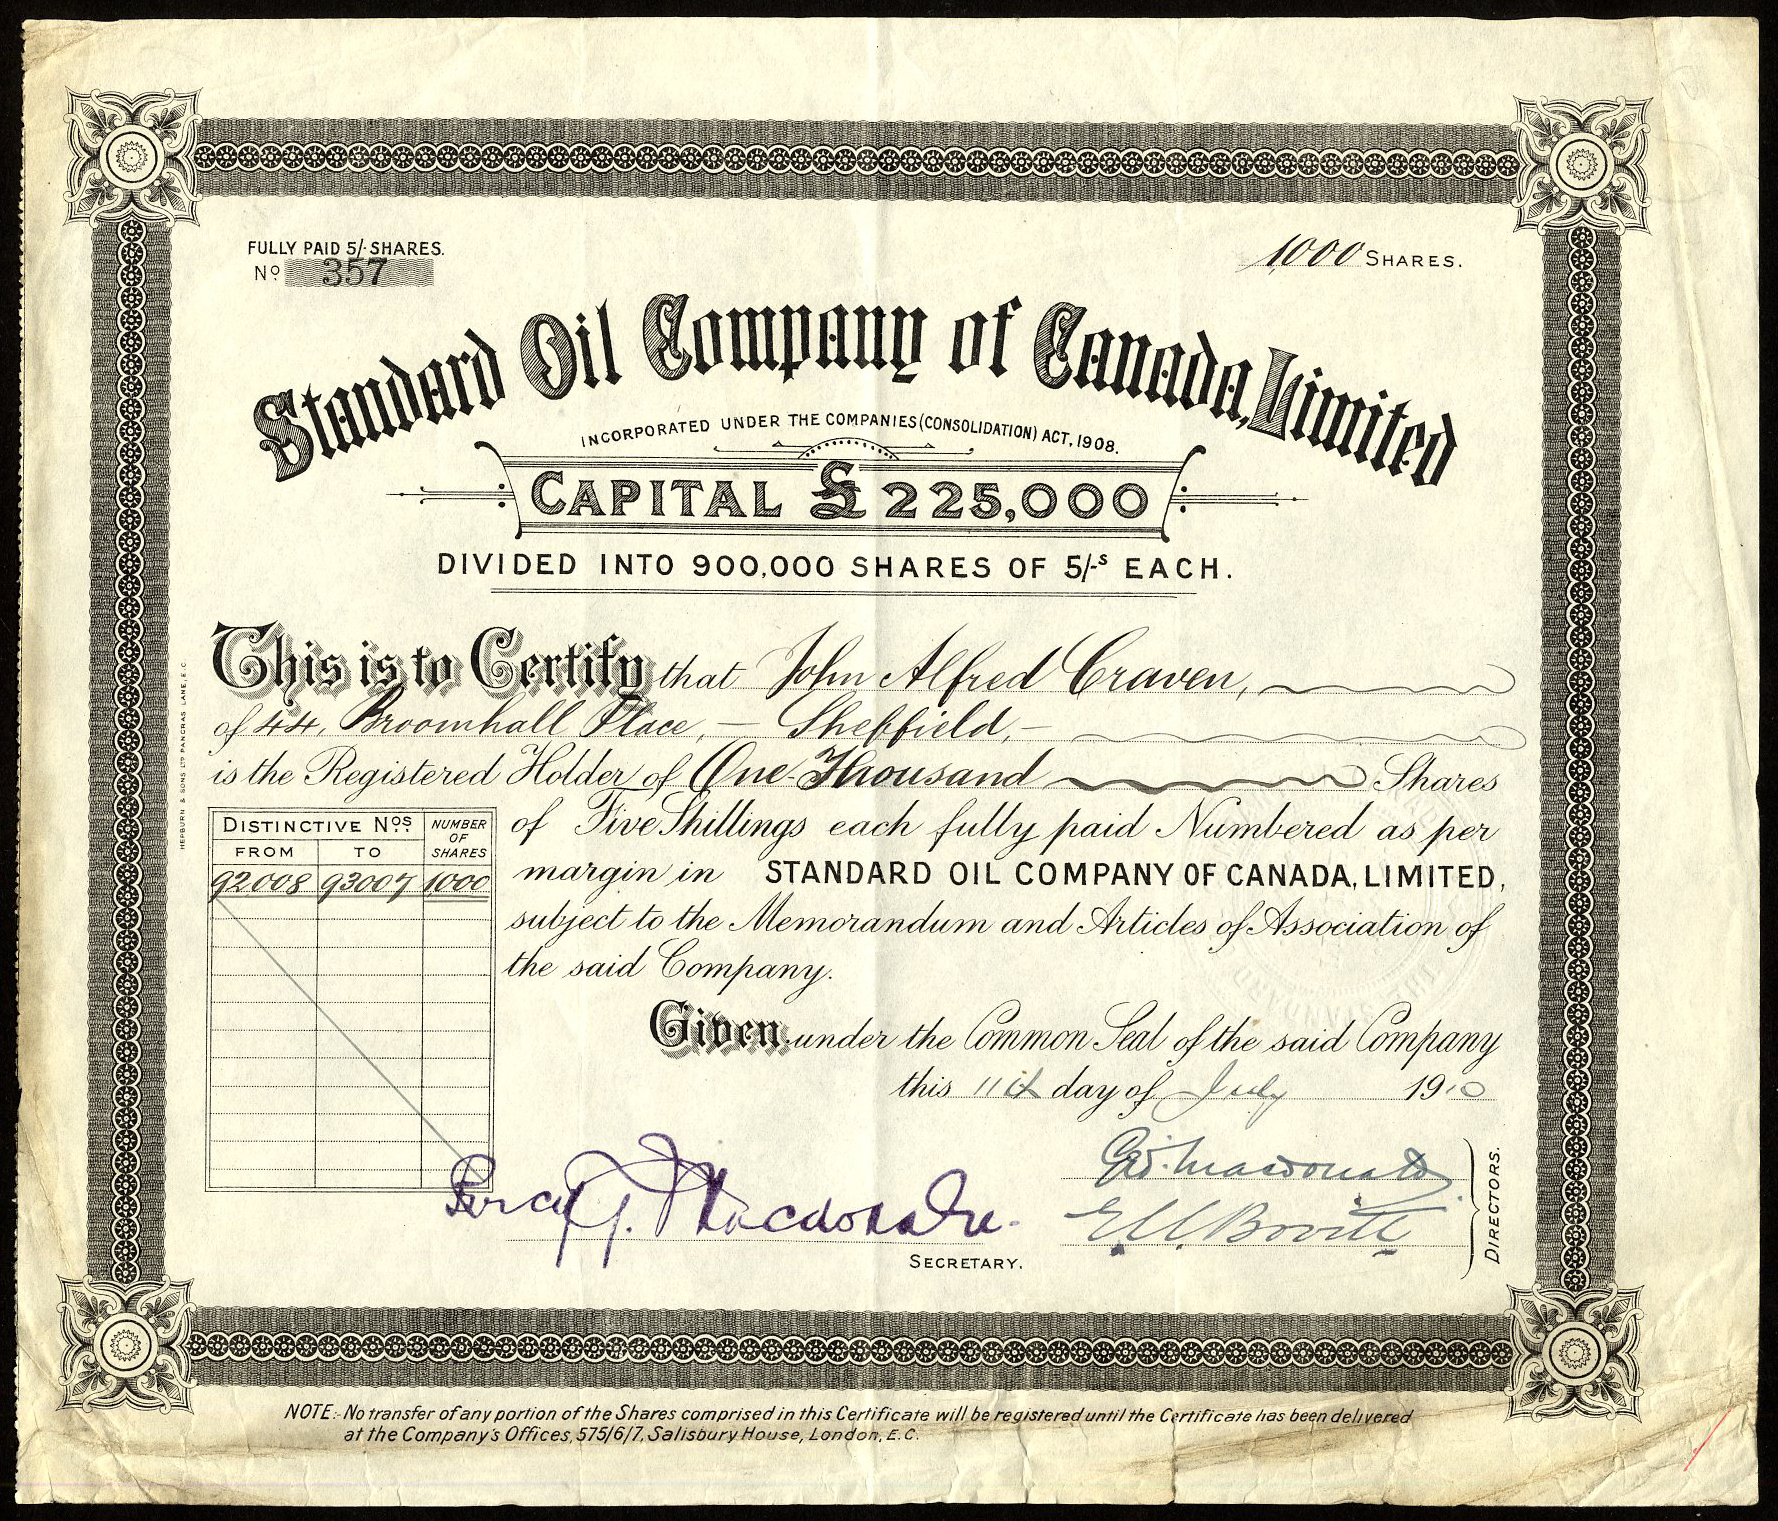 FULLY PAID 5/- SHARES.
No 357
1000 SHARES.
Standard Oil Company of Canada, Limited
INCORPORATED UNDER THE COMPANIES (CONSOLIDATION) ACT, 1908.
CAPITAL £225,000
DIVIDED INTO 900,000 SHARES OF 5/-s EACH.
This is to Certify that John Alfred Craven,
of 44, Broomhall Place, – Sheffield, –
is the Registered Holder of One Thousand Shares
of Five Shillings each fully paid Numbered as per
margin in STANDARD OIL COMPANY OF CANADA, LIMITED,
subject to the Memorandum and Articles of Association of
the said Company.
DISTINCTIVE Nos NUMBER OF SHARES
FROM TO
92008 93007 1000
Given under the Common Seal of the said Company
this 11th day of July 1910
Percy G. Macdonald
SECRETARY.
Geo. Macdonald
Bovill
DIRECTORS.
HEPBURN & SONS LTD PANCRAS LANE, E.C.
NOTE:- No transfer of any portion of the Shares comprised in this Certificate will be registered until the Certificate has been delivered
at the Company's Offices, 575/6/7, Salisbury House, London, E.C.